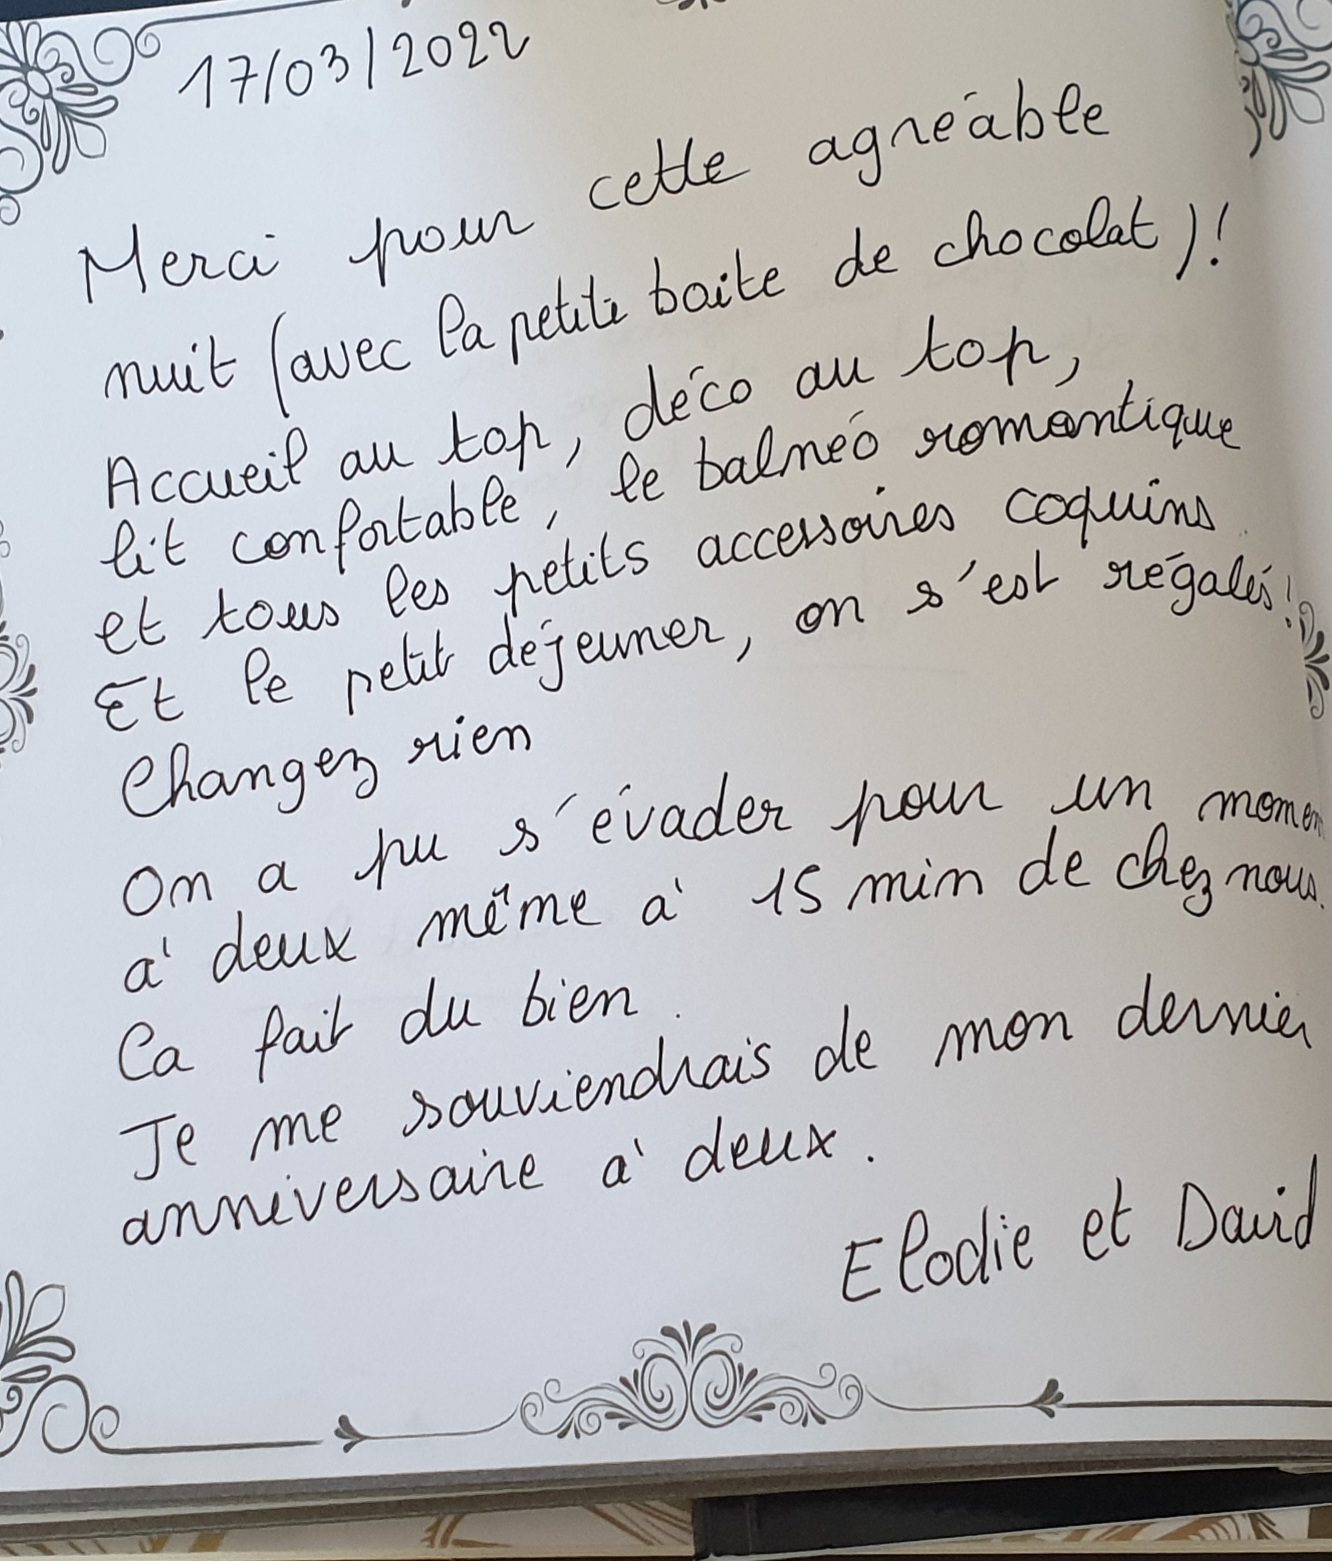 17/03/2022
Merci pour cette agréable
nuit (avec la petite boite de chocolat)!
Accueil au top, déco au top,
lit confortable, le balnéo romantique
et tous les petits accessoires coquins.
Et le petit déjeuner, on s'est régalés!
Changez rien
On a pu s'évader pour un momen
à deux même à 15 min de chez nous.
Ca fait du bien.
Je me souviendrais de mon dernier
anniversaire à deux.
Elodie et David